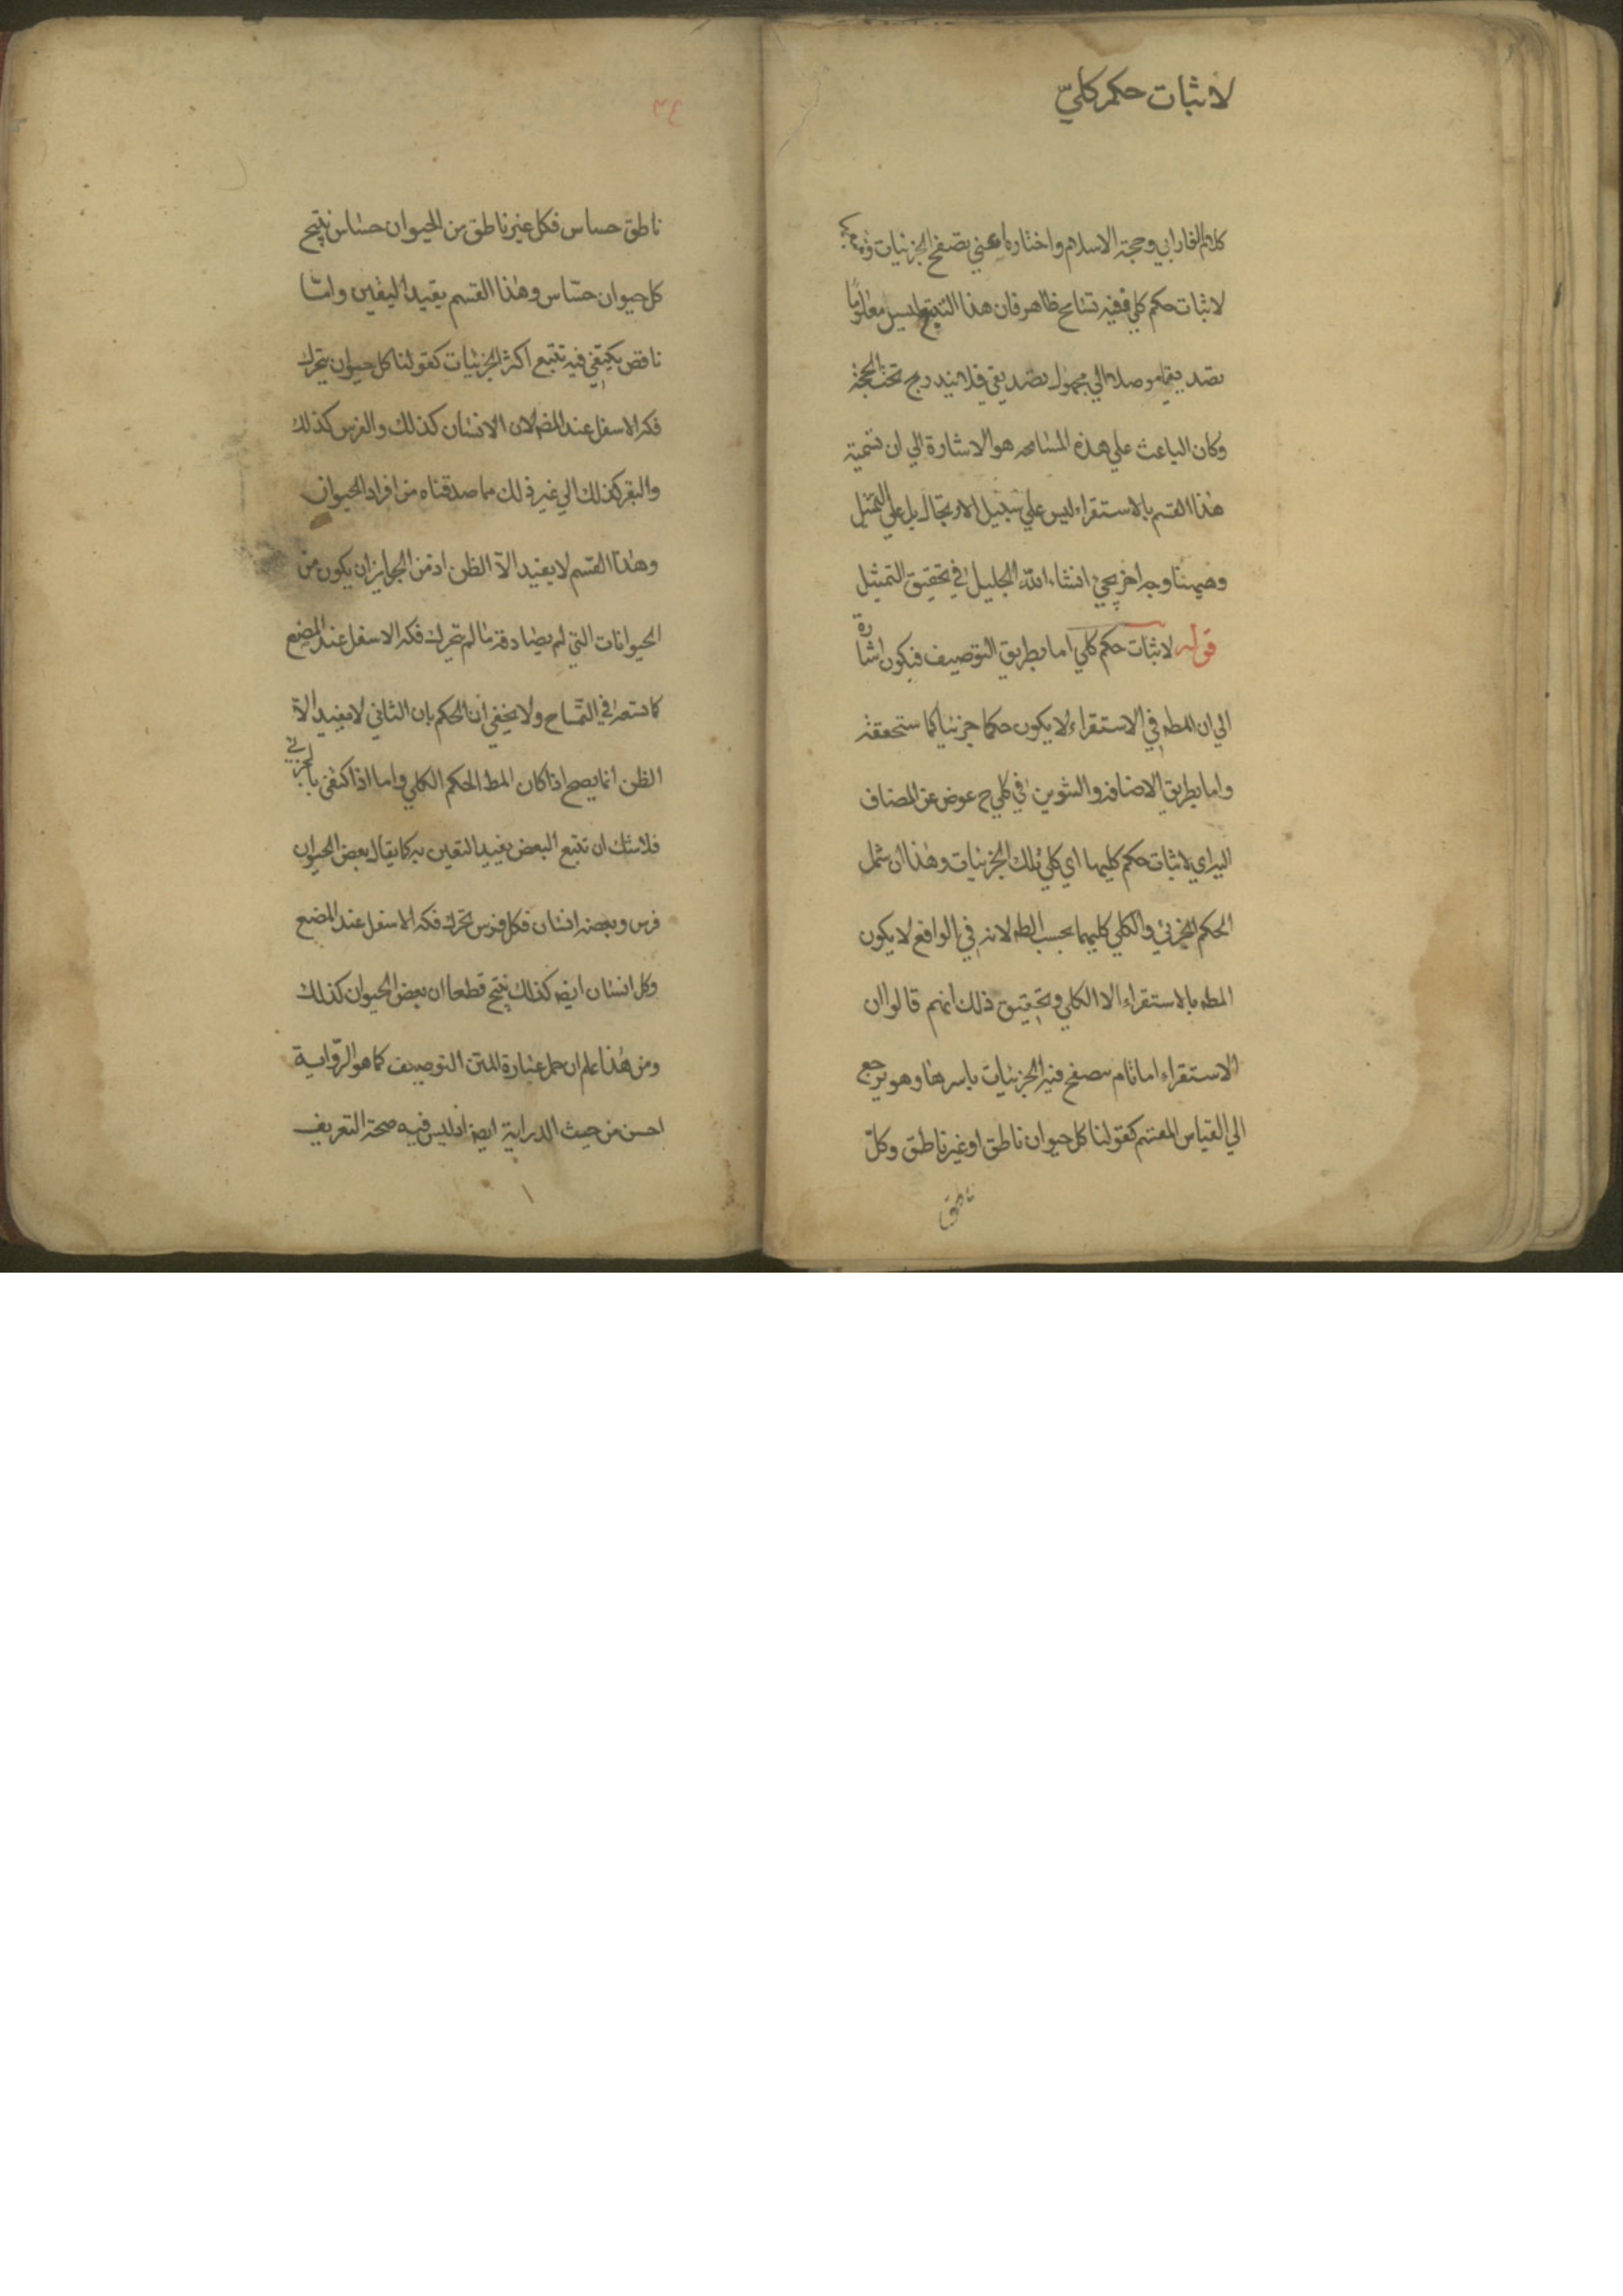 لاثبات حكم كليّ
كلام الفارابي وحجة الاسلام واختاره اعني تصفح الجزئيات وتتبعها
لاثبات حكم كلي ففيه تسامح ظاهر فان هذا التتبع ليس معلومًا
تصديقيا موصلا الي مجهول تصديقي فلا يندرج تحت الحجة
وكان الباعث علي هذه المسامحه هو الاشارة الي ان تسمية
هذا القسم بالاستقراء ليس علي سبيل الارتجال بل علي
وههنا وجه اخر يجيء انشاء الله الجليل في تحقيق التمثيل
قوله لاثبات حكم كلي اما بطريق التوصيف فيكون اشارة
الي ان المطه في الاستقراء لا يكون حكما جزئيا كما ستحققه
واما بطريق الاضافة والتنوين في كلي ح عوض عن المضاف
اليه اي لاثبات حكم كليها اي كلي تلك الجزئيات وهذا ان شمل
الحكم الجزئي والكلي كليهما بحسب الظه لانه في الواقع لا يكون
المطه بالاستقراء الا الكلي وتحقيق ذلك انهم قالوا ان
الاستقراء اما تام يتصفح فيه الجزئيات باسرها وهو يرجع
الي القياس المقسم كقولنا كل حيوان ناطق او غير ناطق وكلّ
ناطق
٣٤
ناطق حساس فكل غير ناطق من الحيوان حساس ينتج
كل حيوان حسّاس وهذا القسم يفيد اليقين وامّا
ناقص يكتفي فيه تتبع اكثر الجزئيات كقولنا كل حيوان يتحرك
فكه الاسفل عند المضغ لان الانسان كذلك والفرس كذلك
والبقر كذلك الي غير ذلك مما صدقناه من افراد الحيوان
وهذا القسم لا يفيد الاّ الظن اذ من الجايز ان يكون من
الحيوانات التي لم يصادقه ما لم يتحرك فكه الاسفل عند المضغ
كما نسمعه في التمساح ولا يخفي ان الحكم بان الثاني لا يفيد الاّ
الظن انما يصح اذا كان المط الحكم الكلي واما اذا اكتفي بالجزئي
فلا شك ان تتبع البعض يفيد اليقين به كما يقال بعض الحيوان
فرس وبعضه انسان فكل فرس تحرك فكه الاسفل عند المضغ
وكل انسان ايضه كذلك ينتج قطعا ان بعض الحيوان كذلك
ومن هذا علم ان حمل عبارة المتن التوصيف كما هو الرّواية
احسن من حيث الدراية ايضه اذ ليس فيه صحة التعريف